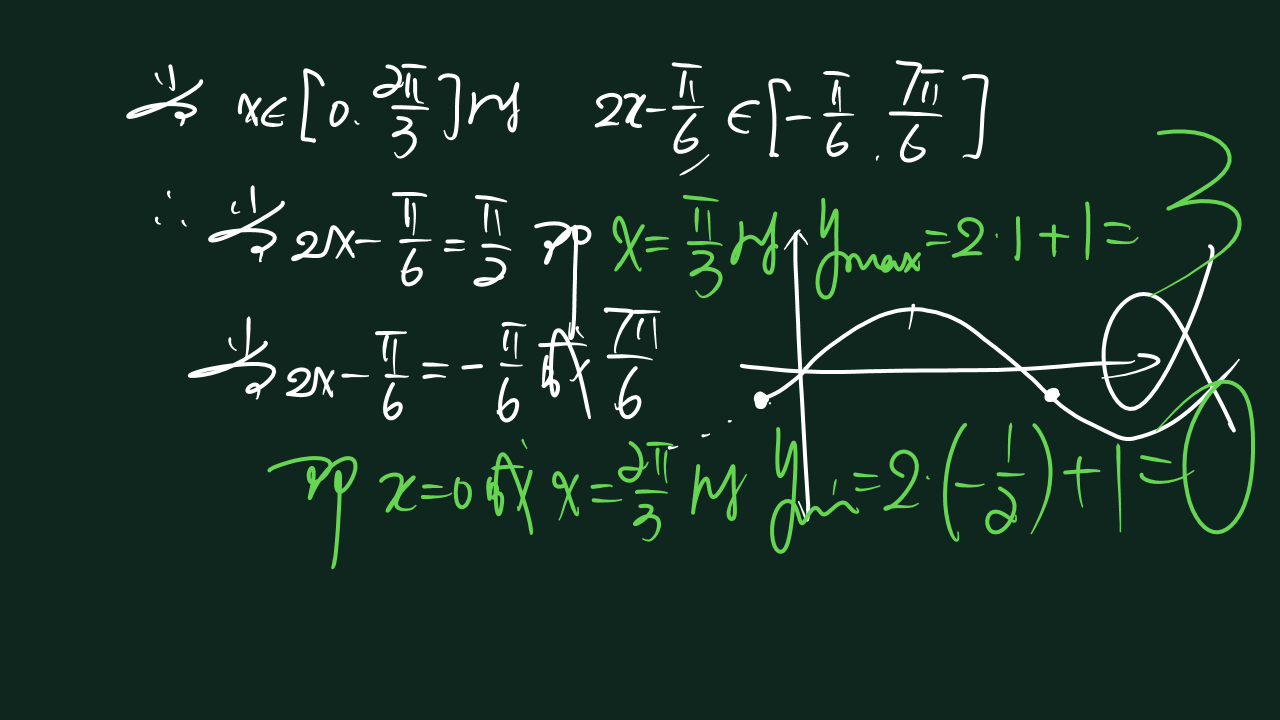 当 x∈[0. 2π/3]时 2x-π/6∈[-π/6. 7π/6]
∴ 当 2x-π/6=π/2 即 x=π/3时 ymax=2·1+1=3
当 2x-π/6=-π/6 或 7π/6
即 x=0 或 x=2π/3 时 ymin=2·(-1/2)+1=0